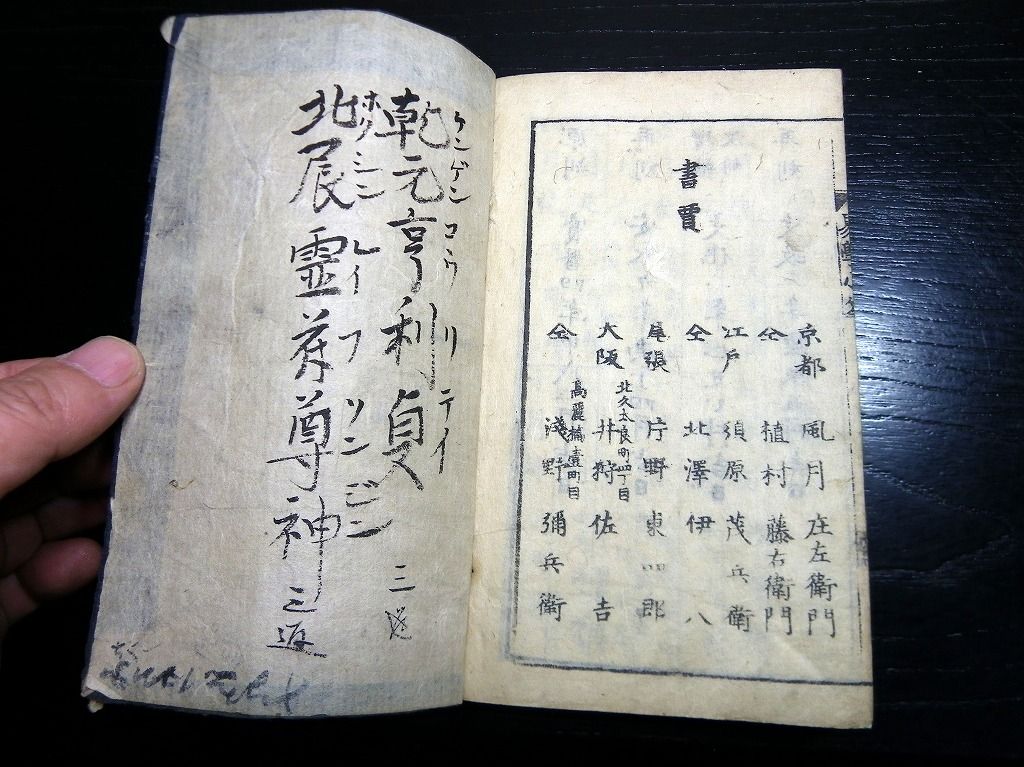 書賈
京都 風月庄左衛門
仝 植村藤右衛門
江戸 須原茂兵衛
仝 北澤伊八
尾張 片野東四郎
大阪 北久太良町四丁目 井狩佐吉
仝 高麗橋壹町目 淺野彌兵衛
乾元亨利貞 三返
ケンゲンコウリテイ
北辰霊符尊神 三返
ホクシンレイフソンジン